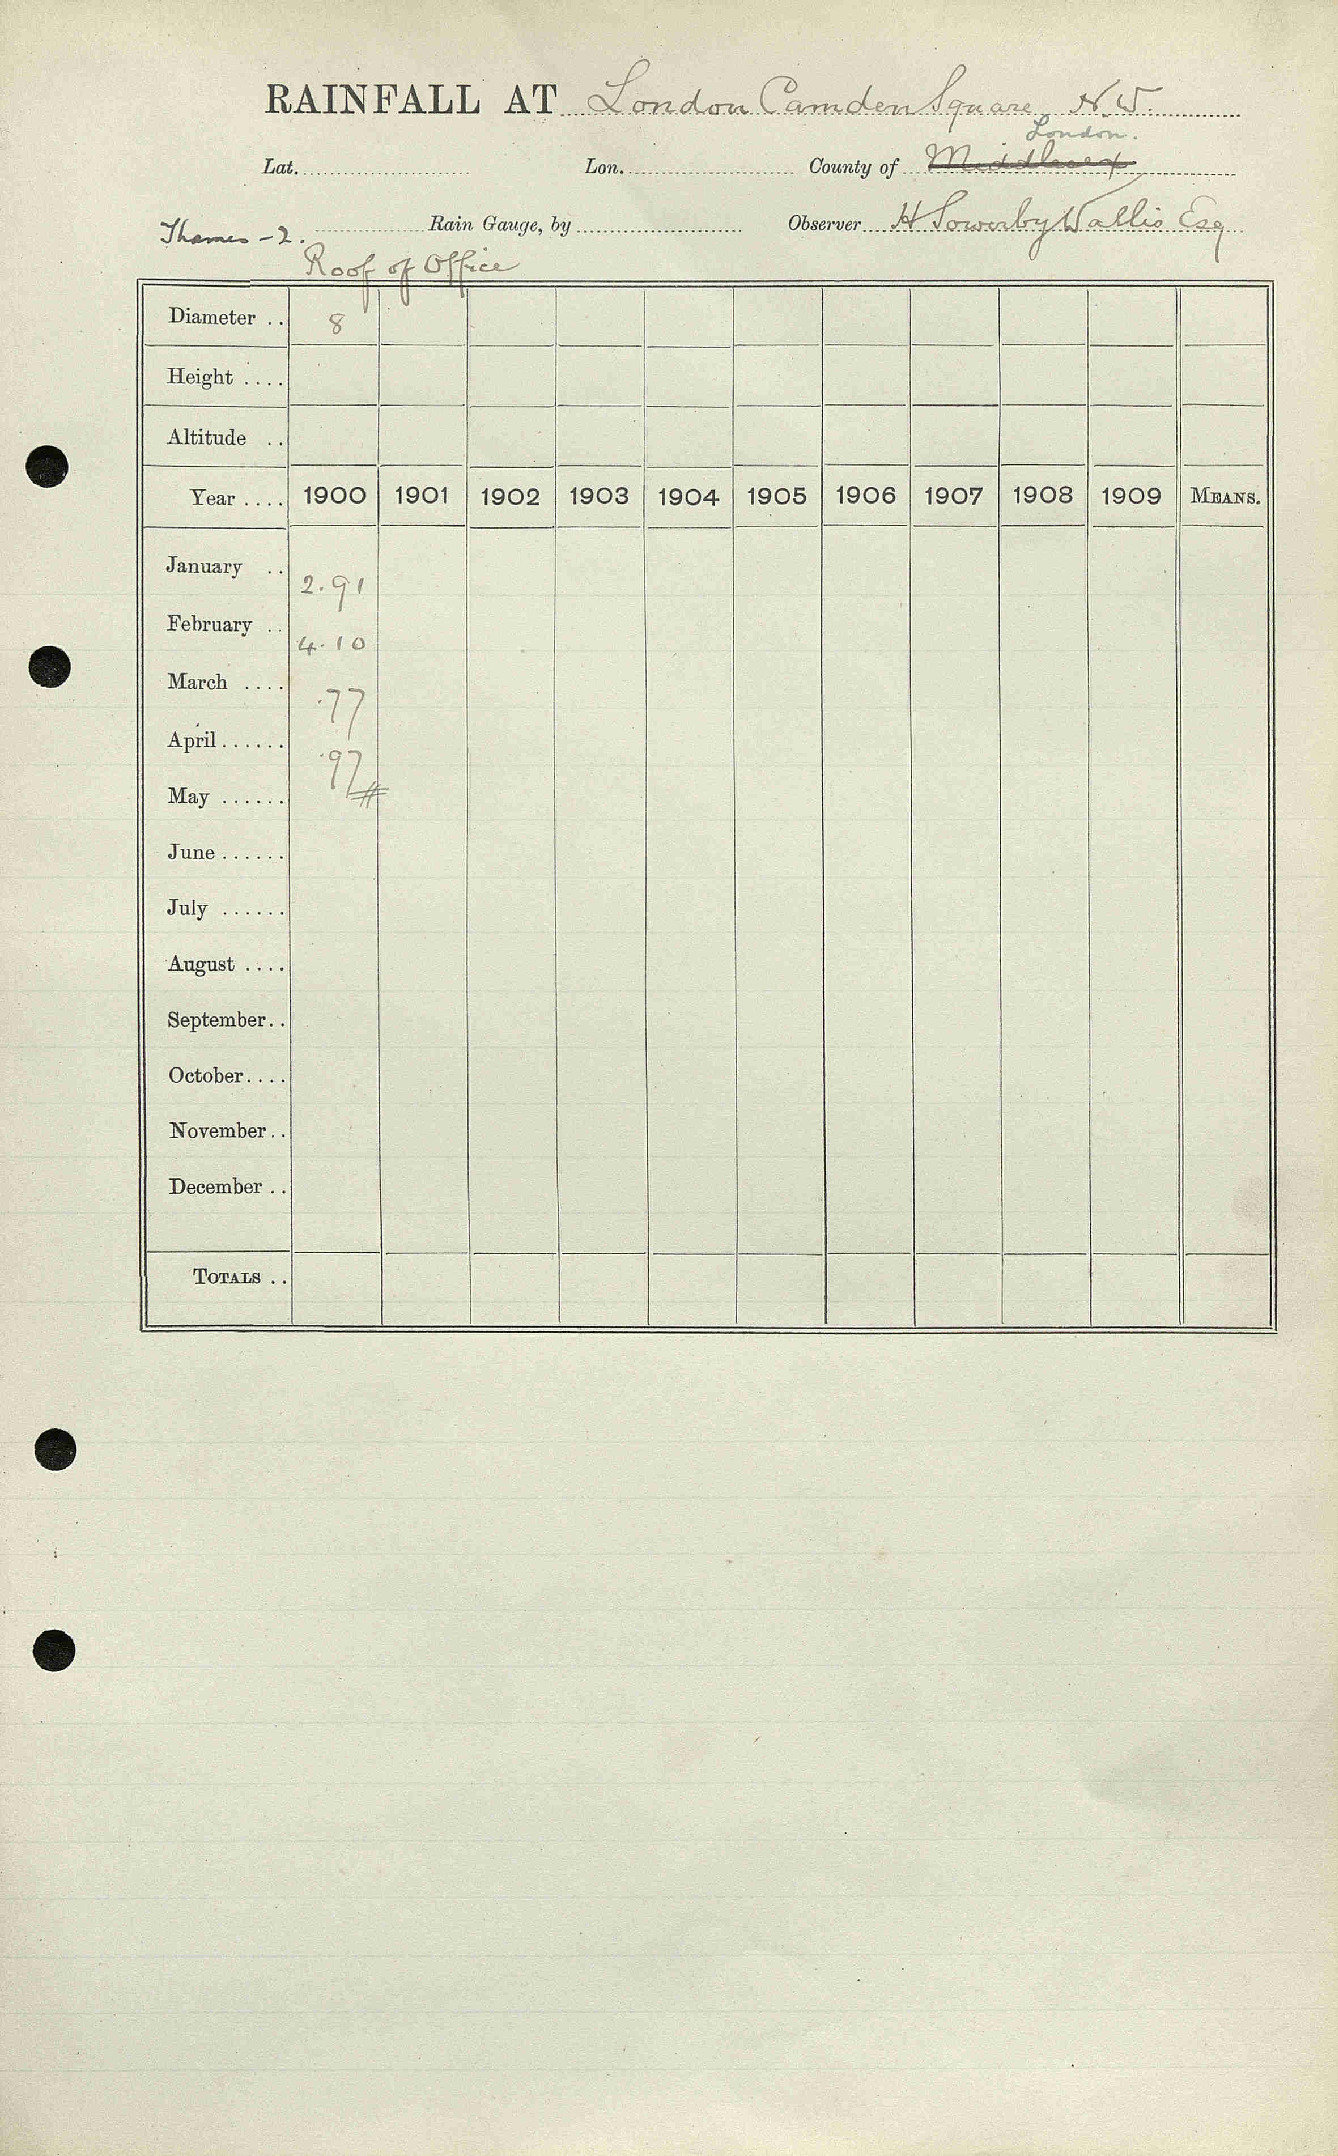 RAINFALL AT London Camden Square N.W.
London.
Lat. Lon. County of Middlesex
Thames - 2. Rain Gauge, by Observer H Sowerby Wallis Esq
Roof of Office
Diameter .. 8
Height ....
Altitude ..
Year .... 1900 1901 1902 1903 1904 1905 1906 1907 1908 1909 MEANS.
January .. 2.91
February .. 4.10
March .... .77
April ...... .97
May ......
June ......
July ......
August ....
September..
October....
November..
December ..
TOTALS ..